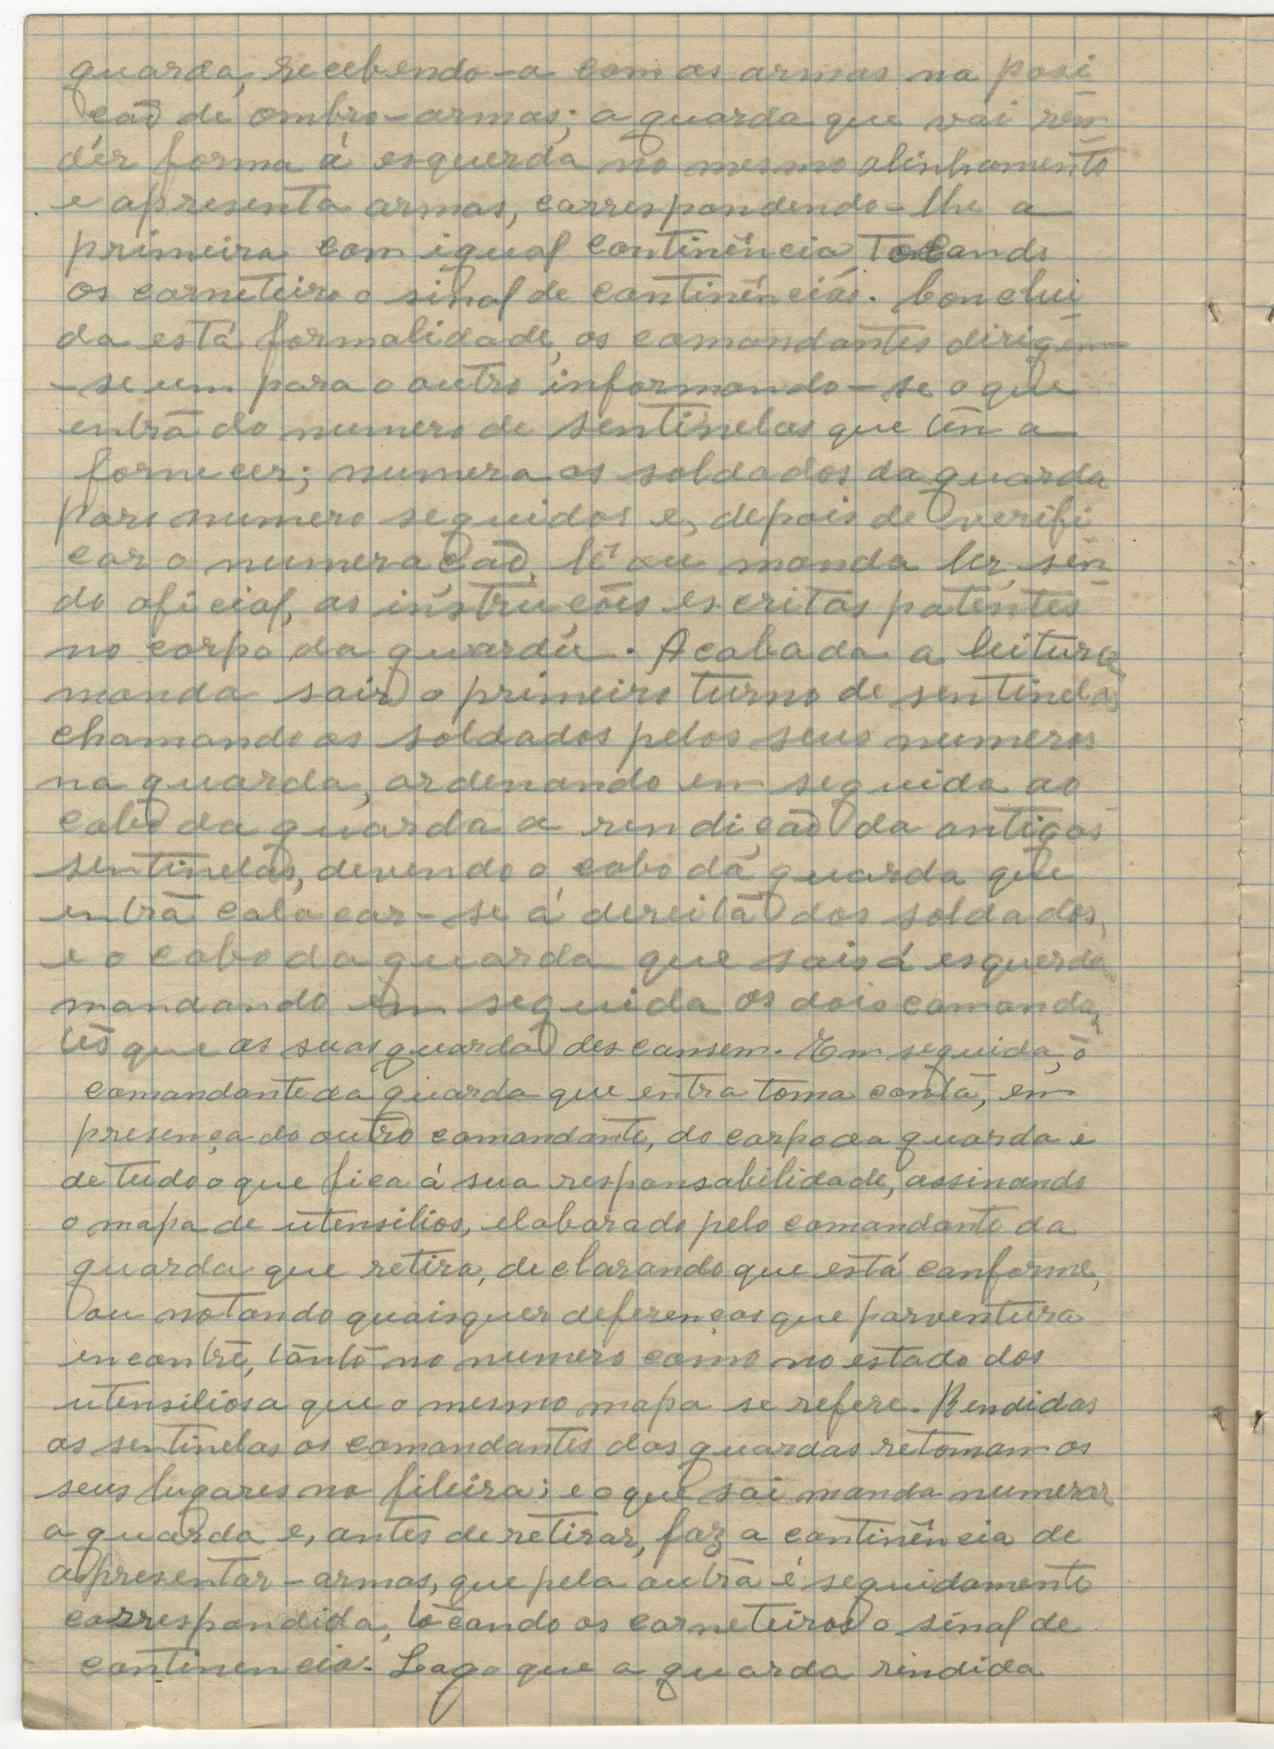 guarda, recebendo-a com as armas na posi
ção de ombro-armas; a guarda que vai ren
dér forma á esquerda no mesmo alinhamento
e apresenta armas, correspondendo-lhe a
primeira com igual continência Tocando
os corneteiro o sinal de continências. Conclui
da está formalidade, os comandantes dirigem-
-se um para o outro informando-se o que
entrã do numero de sentinelas que tên a
fornecer; numera os soldados da guarda
pors numero seguidos e, depois de verifi
car o numeração, lê ou manda ler, sen
do oficial, as instruções escritas patentes
no corpo da guarda. Acabada a leitura
manda sair o primeiro turno de sentinelas
chamando os soldados pelos seus numeros
na guarda, ordenando em seguida ao
cabo da guarda a rendição da antigas
sentinelas, devendo o cabo da guarda que
entrã colocar-se á direita dos soldados,
e o cabo da guarda que sais á esquerda
mandando em seguida os dois comandan
tes que as suas guarda descansem. Em seguida, o
comandante da guarda que entra toma conta, em
presença do outro comandante, do corpo da guarda e
de tudo o que fica á sua responsabilidade, assinando
o mapa de utensilios, elaborado pelo comandante da
guarda que retira, declarando que está conforme,
ou notando quaisquer deferenças que porventura
encontre, tanto no numero como no estado dos
utensilios a que o mesmo mapa se refere. Rendidas
as sentinelas os comandantes das guardas retomam os
seus lugares na fileira; e o que sai manda numerar
a guarda e, antes de retirar, faz a continência de
apresentar-armas, que pela outra é seguidamente
correspondida, tocando os corneteiros o sinal de
continencia. Logo que a guarda rindida